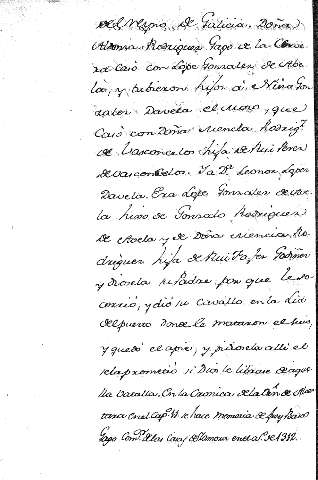 del Reyno de Galicia. Doña
Aldonza Rodriguez Gago de la Cerve
ra Casó con Lope Gonzalez de Abe
la, y tubieron hijos á Nuña Gon
zalez Davela el Mozo, que
Casó con Doña Mencia Rodrig.
de Vasconcelos hija de Rui Perez
de Vasconcelos. Ja D.ª Leonor Lopez
Davela. Era Lope Gonzalez de Ave
la hixo de Gonzalo Rodriguez
de Avela y de Doña Mencia Ro
driguez hija de Rui
y diosela su Padre, por que le so
corrió, y dió su Cavallo en la Lid
del puerto donde le mataron el suyo,
y quedó el apie, y pidiosela alli el
se la prometió si Dios le librase de aque
lla Vatalla. En la Cronica de la Ôrn de Alcan
tara en el Cap.º se hace memoria de frey
Gago Com.or de las Casas de Zamora en el a.º de 1312.